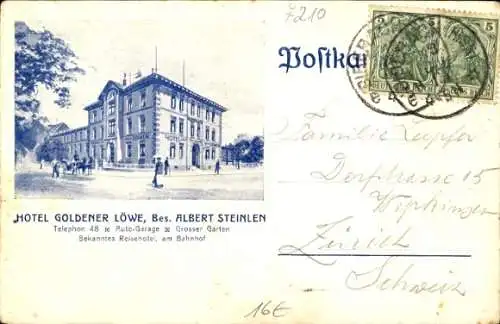 7210
Postkar
5 5
HOTEL GOLDENER LÖWE, Bes. ALBERT STEINLEN
Telephon 48 ⁙ Auto-Garage ⁙ Grosser Garten
Bekanntes Reisehotel, am Bahnhof
Familie
Dorfstrasse 15
Wipkingen
Zürich
Schweiz
16€